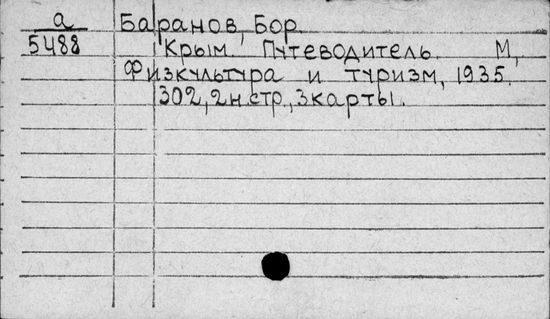 а
5488
Баранов, Бор.
Крым. Путеводитель. М,
Физкультура и туризм, 1935.
302, 2 н стр., 3 карты.